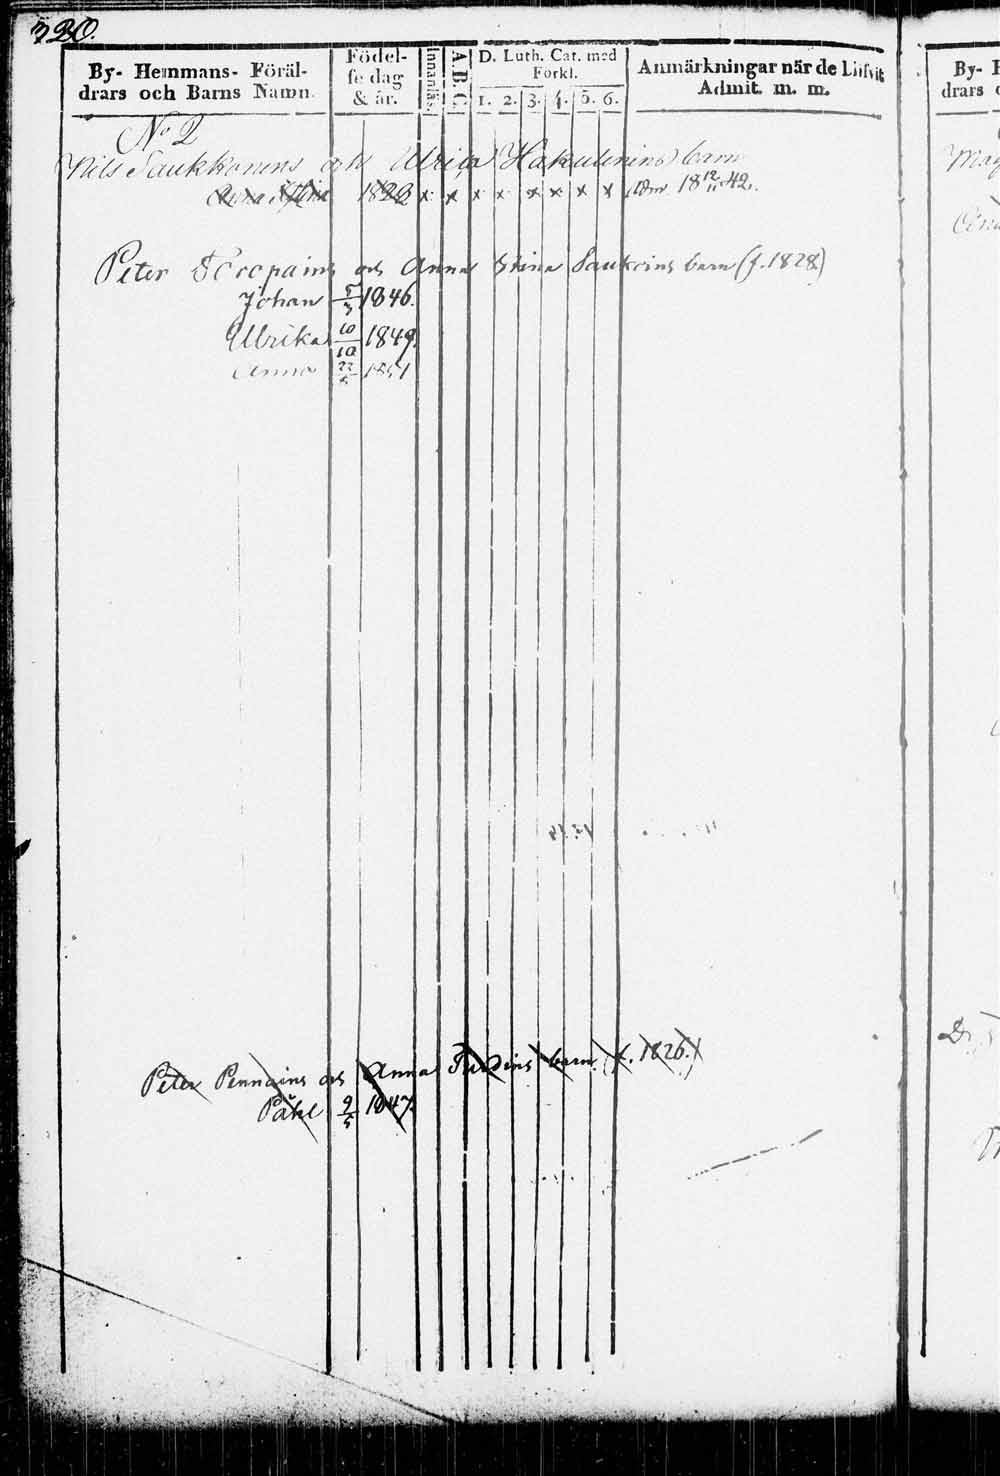 320.
By- Hemmans- Föräl-
drars och Barns Namn.
Födel-
se dag
& år.
Innanläs.
A.B.C.
D. Luth. Cat. med
Förkl.
1. 2. 3. 4. 5. 6.
Anmärkningar när de blifvit
Admit. m. m.
No 2
Nils Saukkonens och Ulrica Hakulinins barn
Anna Stina 1822 x x x x x x x x 18 12/11 42.
Peter och Anna Stina Saukoins barn (f. 1828)
Johan 5/3 1846.
Ulrika 10/10 1849.
Anna 22/5 1851
Peter Pennains och Anna barn. (f. 1826.)
Påhl 9/5 1847.
By-
drars